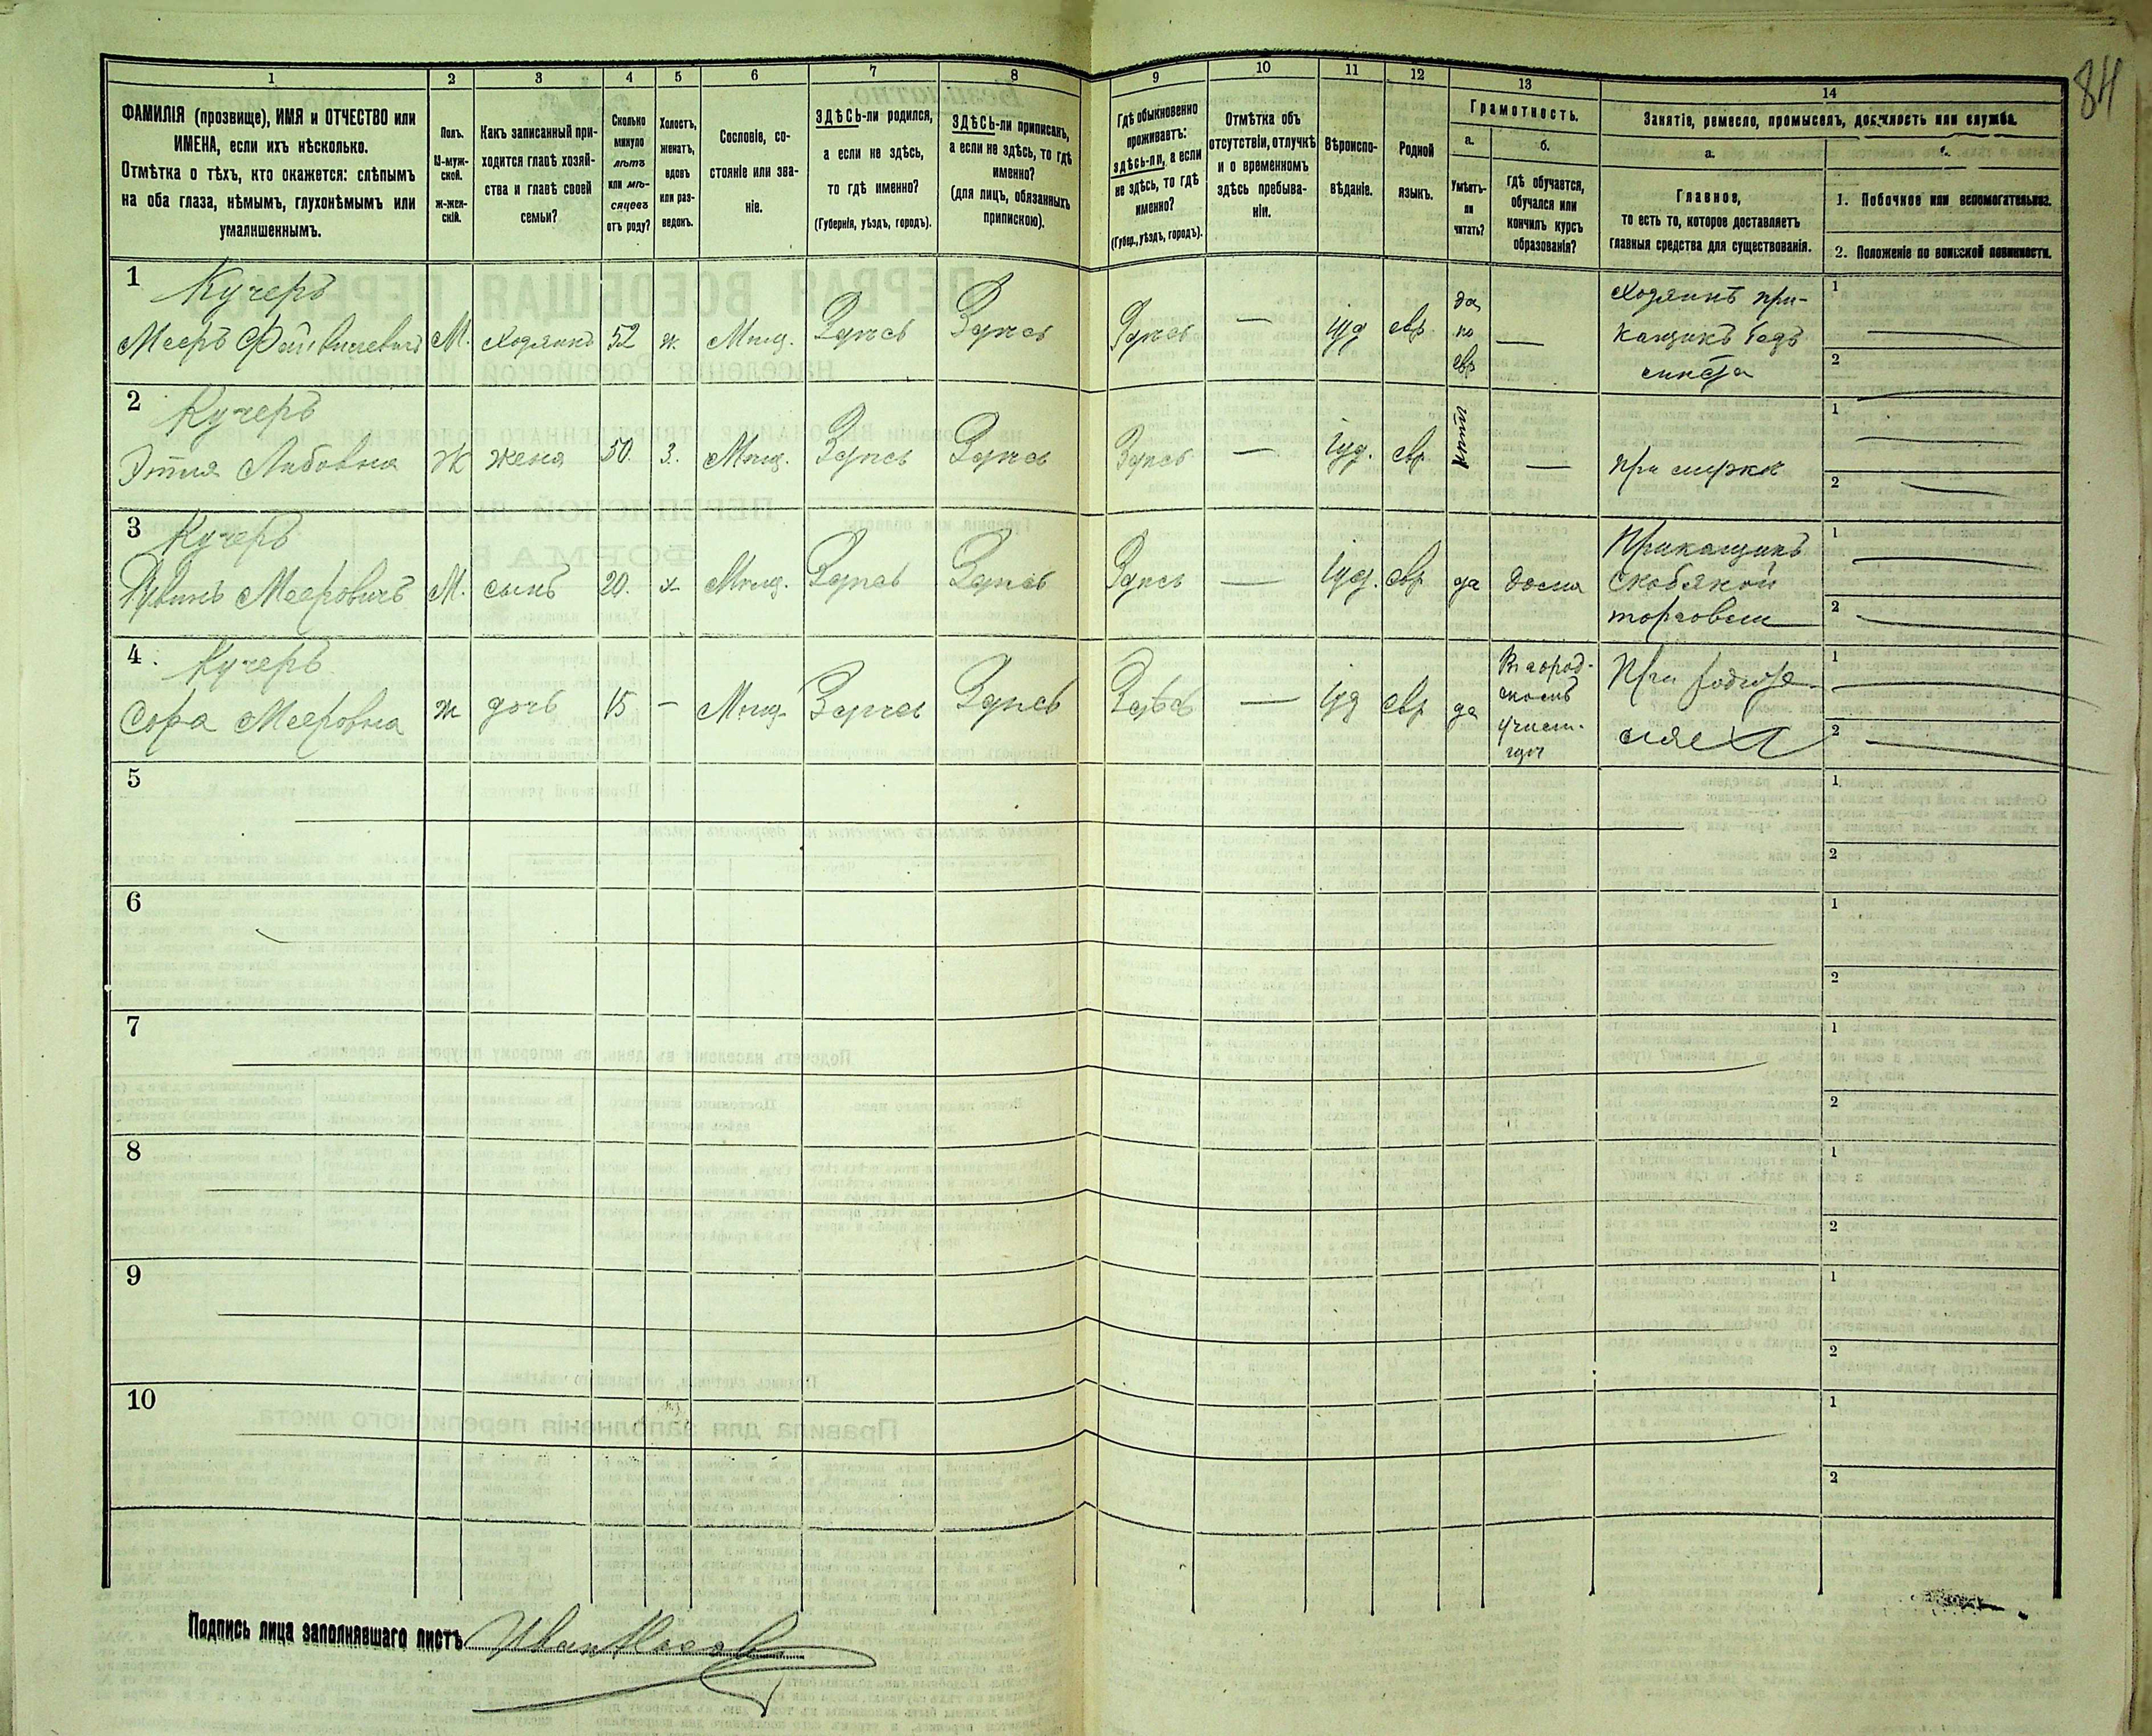 84
1 2 3 4 5 6 7 8 9 10 11 12 13 14
ФАМИЛІЯ (прозвище), ИМЯ и ОТЧЕСТВО или
ИМЕНА, если ихъ нѣсколько.
Отмѣтка о тѣхъ, кто окажется: слѣпымъ
на оба глаза, нѣмымъ, глухонѣмымъ или
умалишеннымъ.
Полъ.
М-муж-
ской.
Ж-жен-
скій.
Какъ записанный при-
ходится главѣ хозяй-
ства и главѣ своей
семьи?
Сколько
минуло
лѣтъ
или мѣ-
сяцевъ
отъ роду?
Холостъ,
женатъ,
вдовъ
или раз-
веденъ.
Сословіе, со-
стояніе или зва-
ніе.
ЗДѢСЬ-ли родился,
а если не здѣсь,
то гдѣ именно?
(Губернія, уѣздъ, городъ).
ЗДѢСЬ-ли приписанъ,
а если не здѣсь, то гдѣ
именно?
(для лицъ, обязанныхъ
припискою).
Гдѣ обыкновенно
проживаетъ:
здѣсь-ли, а если
не здѣсь, то гдѣ
именно?
(Губер., уѣздъ, городъ).
Отмѣтка объ
отсутствіи, отлучкѣ
и о временномъ
здѣсь пребыва-
ніи.
Вѣроиспо-
вѣданіе.
Родной
языкъ.
Грамотность.
а.
Умѣетъ-
ли
читать?
б.
гдѣ обучается,
обучался или
кончилъ курсъ
образованія?
Занятіе, ремесло, промыселъ, должность или служба.
а.
Главное,
то есть то, которое доставляетъ
главныя средства для существованія.
1. Побочное или вспомогательное.
2. Положеніе по воинской повинности.
1 Кучеръ
Мееръ Файвишевичъ М. хозяинъ 52 ж. Мѣщ. Здѣсь Здѣсь Здѣсь — Іуд евр да по евр — Хозяинъ при-
кащикъ безъ
мѣста
1
2
2 Кучеръ
Этля Лейбовна Ж жена 50. З. Мѣщ. Здѣсь Здѣсь Здѣсь — Іуд. евр нѣтъ — при мужѣ
1
2
3 Кучеръ
Рувинъ Мееровичъ М. сынъ 20. х. Мѣщ. Здѣсь Здѣсь Здѣсь — Іуд. евр да дома Прикащикъ
скобяной
торговли
1
2
4. Кучеръ
Сора Мееровна ж дочь 15 — Мѣщ. Здѣсь Здѣсь Здѣсь — Іуд евр да Въ город-
скомъ
училищѣ
При родите-
ляхъ
1
2
5
1
2
6
1
2
7
1
2
8
1
2
9
1
2
10
1
2
Подпись лица заполнявшаго листъ Иван